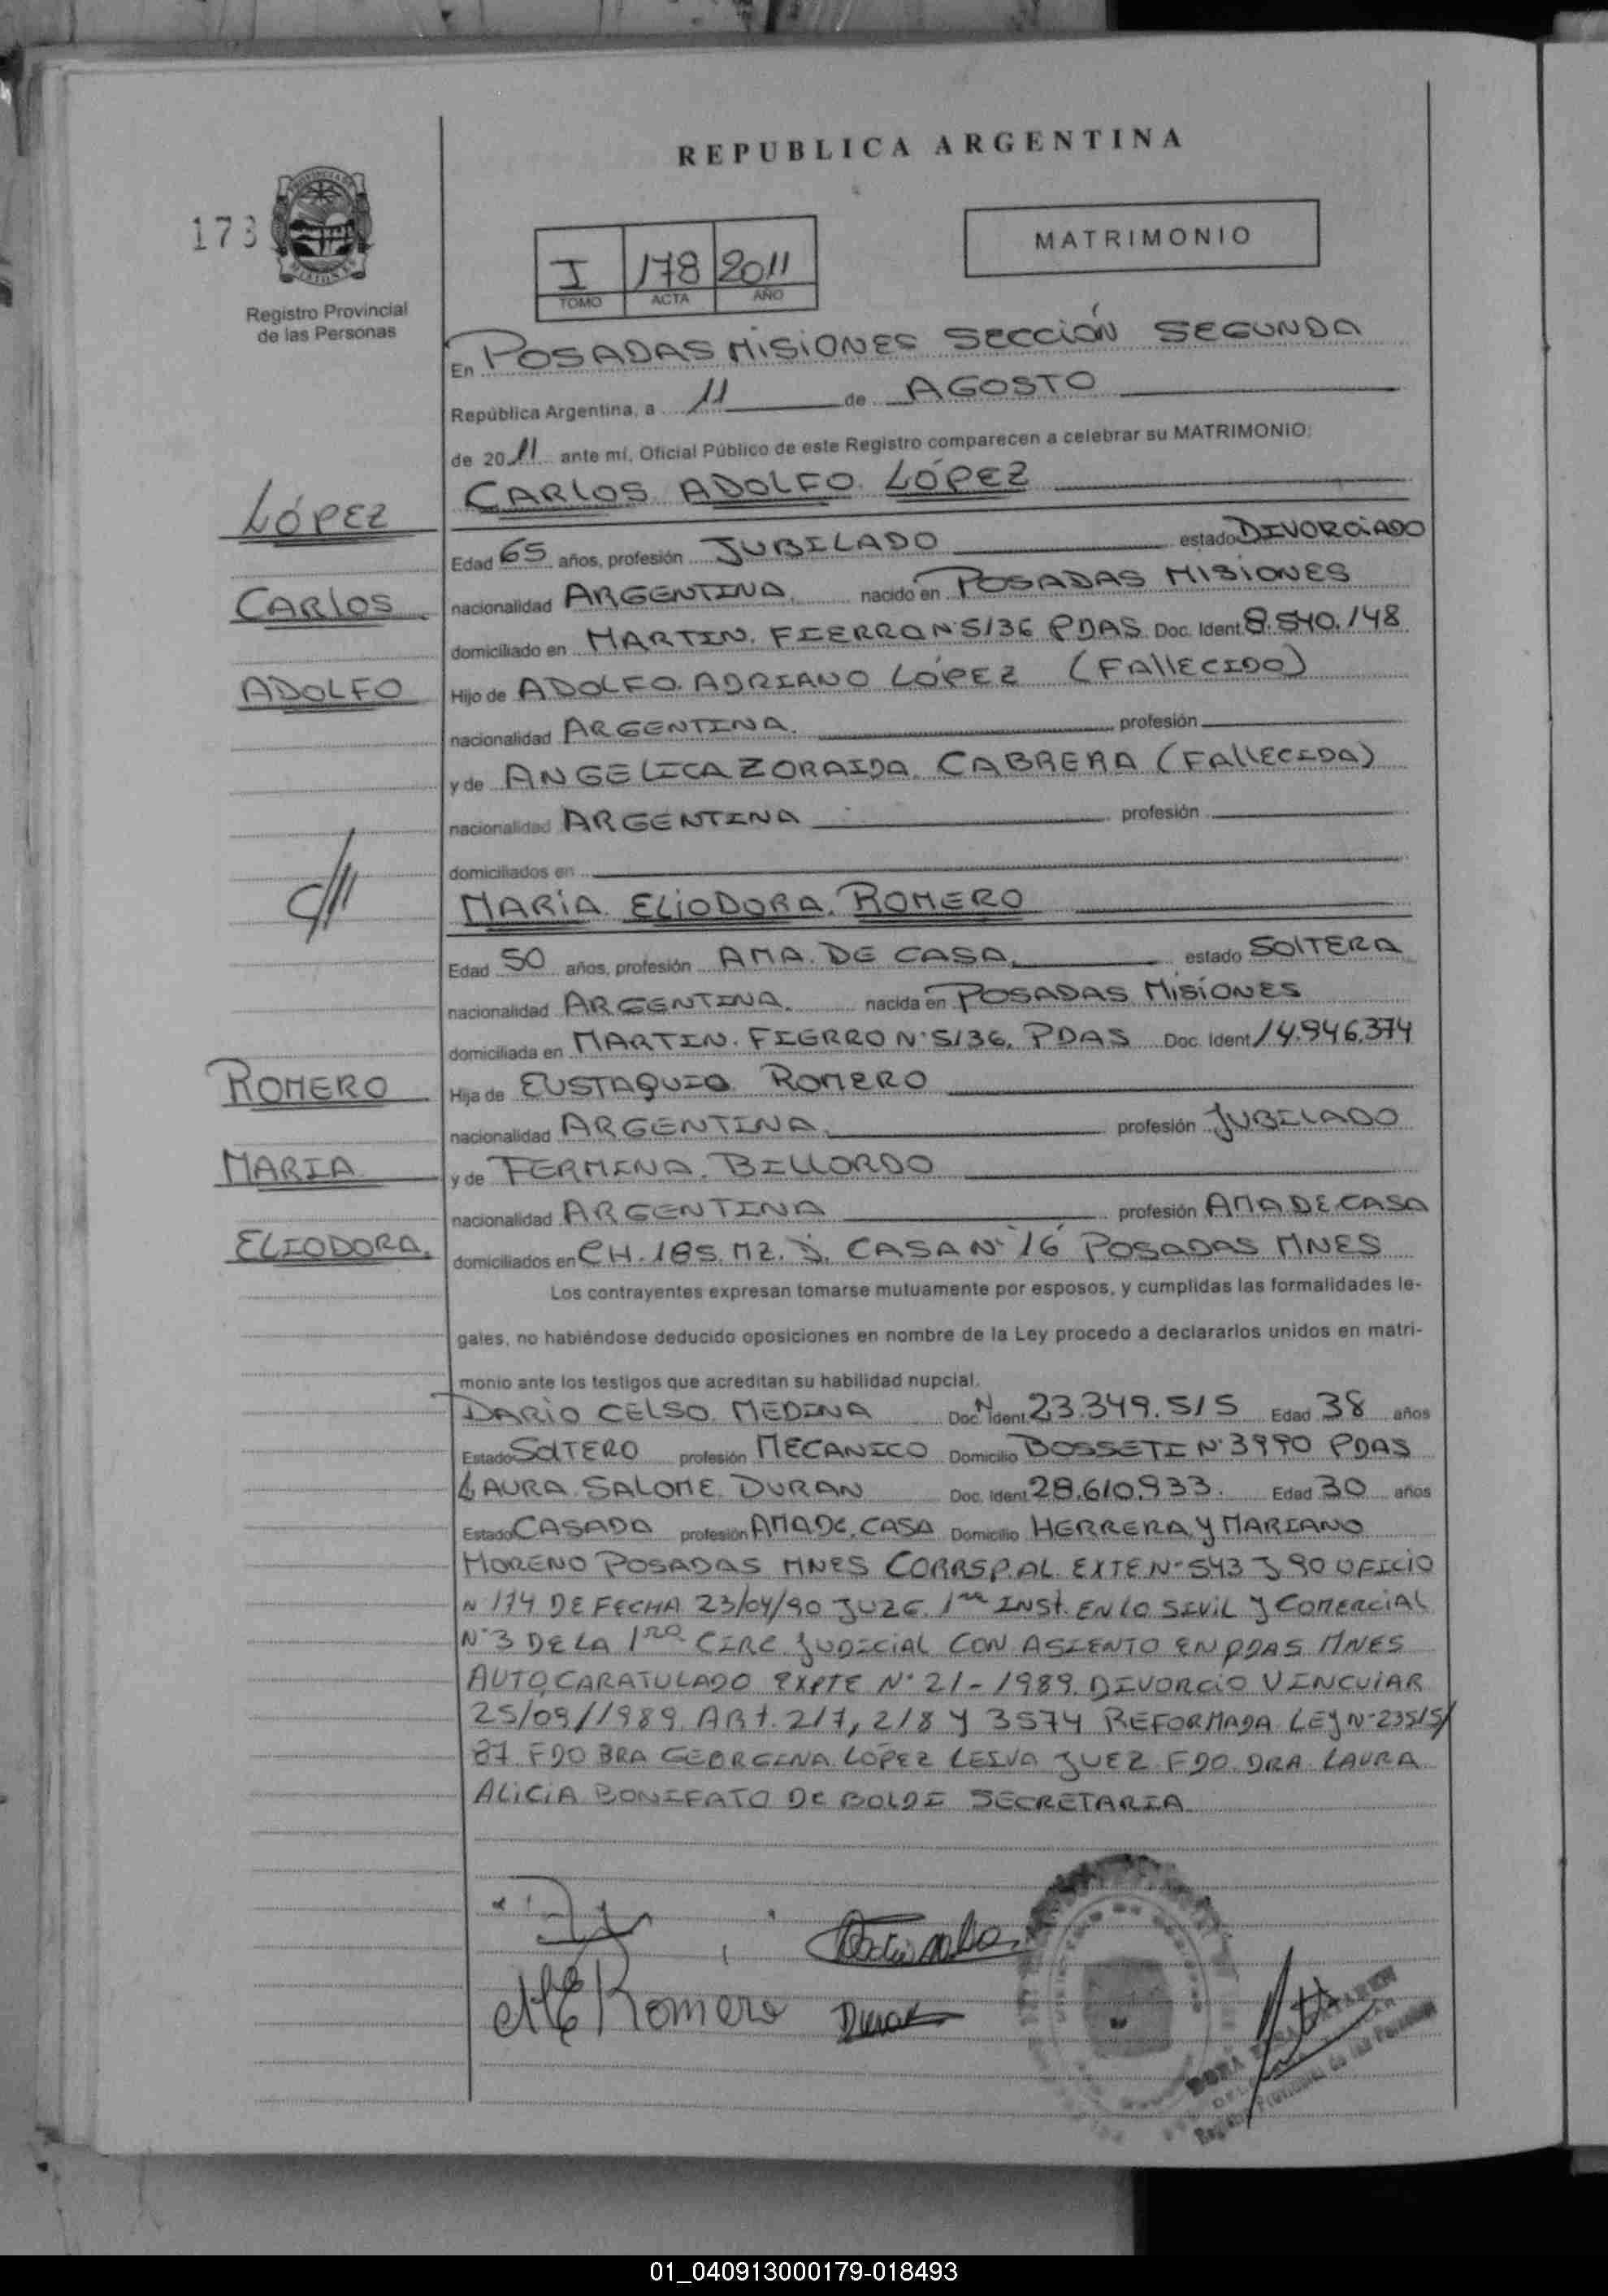 REPUBLICA ARGENTINA
173
MATRIMONIO
I 178 2011
TOMO ACTA AÑO
Registro Provincial
de las Personas
En POSADAS MISIONES SECCIÓN SEGUNDA
República Argentina, a 11 de AGOSTO
de 2011 ante mí, Oficial Público de este Registro comparecen a celebrar su MATRIMONIO:
CARLOS ADOLFO LÓPEZ
LÓPEZ
Edad 65 años, profesión JUBILADO estado DIVORCIADO
CARLOS
nacionalidad ARGENTINA. nacido en POSADAS MISIONES
domiciliado en MARTIN. FIERRO N° 5136 PDAS Doc. Ident. 8.540.148
ADOLFO
Hijo de ADOLFO ADRIANO LÓPEZ (FALLECIDO)
nacionalidad ARGENTINA. profesión
y de ANGELICA ZORAIDA CABRERA (FALLECIDA)
nacionalidad ARGENTINA profesión
C///
domiciliados en
MARÍA ELIODORA. ROMERO
Edad 50 años, profesión AMA. DE CASA. estado SOLTERA
nacionalidad ARGENTINA. nacida en POSADAS MISIONES
domiciliada en MARTIN. FIERRO N° 5136. PDAS Doc. Ident 14.946.374
ROMERO
Hija de EUSTAQUIO ROMERO
nacionalidad ARGENTINA. profesión JUBILADO
MARIA
y de FERMINA. BILLORDO
nacionalidad ARGENTINA profesión AMA DE CASA
ELIODORA.
domiciliados en CH. 185. MZ. J. CASA N° 16 POSADAS MNES
Los contrayentes expresan tomarse mutuamente por esposos, y cumplidas las formalidades le-
gales, no habiéndose deducido oposiciones en nombre de la Ley procedo a declararlos unidos en matri-
monio ante los testigos que acreditan su habilidad nupcial.
DARIO CELSO MEDINA Doc. Ident. N° 23.349.515 Edad 38 años
Estado SOLTERO profesión MECANICO Domicilio BOSSETI N° 3990 PDAS
LAURA SALOME DURAN Doc. Ident. 28.610.933. Edad 30 años
Estado CASADA profesión AMA DE CASA Domicilio HERRERA Y MARIANO
MORENO POSADAS MNES CORRSP. AL EXTE N° 543 J 90 OFICIO
N 174 DE FECHA 23/04/90 JUZG. 1ra INST. EN LO SIVIL y COMERCIAL
N° 3 DE LA 1RA CIRC. JUDICIAL CON ASIENTO EN PDAS MNES
AUTO CARATULADO EXPTE N° 21-1989. DIVORCIO VINCULAR
25/09/1989. ART. 217, 218 Y 3574 REFORMADA LEY N° 23515/
87. FDO DRA GEORGINA LÓPEZ LEIVA JUEZ. FDO. DRA. LAURA
ALICIA BONIFATO DE BOLDE SECRETARIA
M E Romero Duran
Registro Provincial de las Personas
01_040913000179-018493